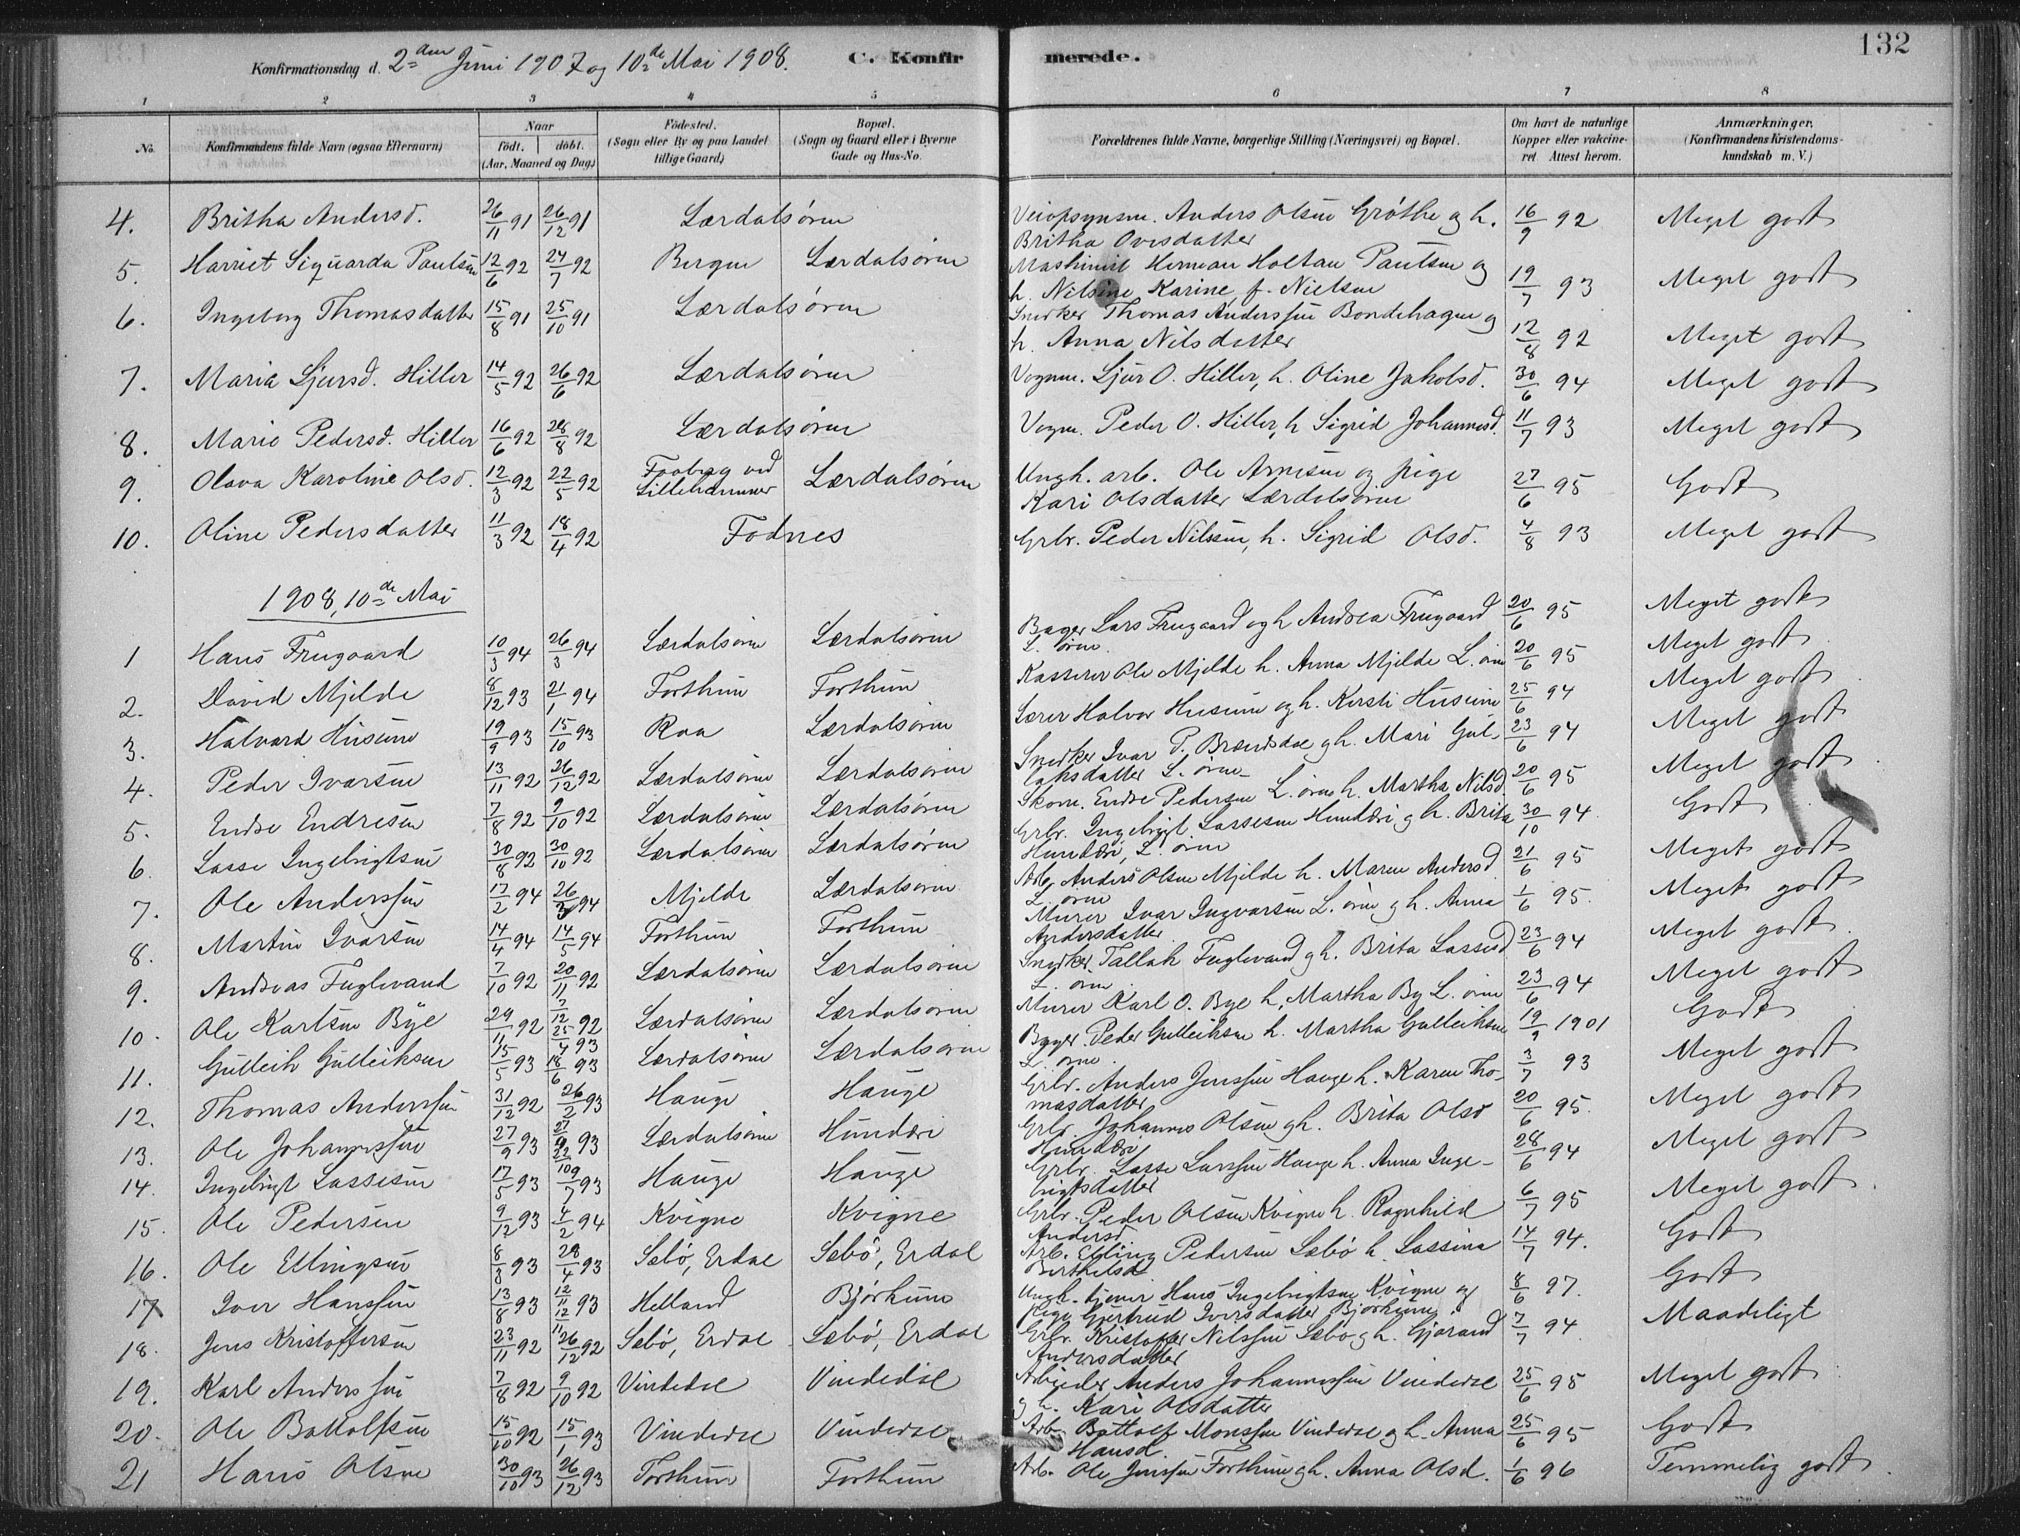 132
Konfirmationsdag d. 2den Juni 1907 og 10de Mai 1908. C. Konfirmerede.
1 2 3 4 5 6 7 8
No. Konfirmandens fulde Navn (ogsaa Efternavn) Naar født. døbt. (Aar, Maaned og Dag.) Fødested. (Sogn eller By og paa Landet tillige Gaard.) Bopæl. (Sogn og Gaard eller i Byerne Gade og Hus-No. Forældrenes fulde Navne, borgerlige Stilling (Næringsvei) og Bopæl. Om havt de naturlige Kopper eller vakcineret. Attest herom. Anmærkninger. (Konfirmandens Kristendomskundskab m. V.)
4. Britha Andersd. 26/11 91 26/12 91 Lærdalsøren Veiopsynsm. Anders Olsen Grøthe og h. Britha Ovesdatter 16/9 92 Meget godt
5. Harriet Siguarda Paulsen 12/6 92 24/7 92 Bergen Lærdalsøren Maskinist Herman Holtan Paulsen og h. Nilsine Karine f. Nielsen 19/7 93 Meget godt
6. Ingeborg Thomasdatter 15/8 91 25/10 91 Lærdalsøren Snedker Thomas Anderssen Bondehagen og h. Anna Nilsdatter 12/8 92 Meget godt
7. Maria Sjursd. Hiller 14/5 92 26/6 92 Lærdalsøren Vognm. Sjur O. Hiller, h. Oline Jakobsd. 30/6 94 Meget godt
8. Marie Pedersd. Hiller 16/6 92 28/8 92 Lærdalsøren Vognm. Peder O. Hiller, h Sigrid Johannesd. 11/7 93 Meget godt
9. Olava Karoline Olsd. 12/3 92 22/5 92 Faaberg ved Lillehammer Lærdalsøren Ungk. arb. Ole Arnesen og pige Kari Olsdatter Lærdalsøren 27/6 95 Godt
10. Oline Pedersdatter 11/3 92 18/4 92 Fodnes Grbr. Peder Nilssen, h. Sigrid Olsd. 4/8 93 Meget godt
1908, 10de Mai
1 Hans Frugaard 10/3 94 26/3 94 Lærdalsøren Lærdalsøren Bager Lars Frugaard og h Andrea Frugaard L. øren. 20/6 95 Meget godt
2. David Mjelde 8/12 93 21/1 94 Forthun Forthun Kasserer Ole Mjelde h. Anna Mjelde L. øren 20/6 95 Meget godt
3. Halvard Husum 19/9 93 15/10 93 Raa Lærdalsøren Lærer Halvor Husum og h. Kersti Husum 25/6 94 Meget godt
4. Peder Ivarsen 13/11 92 26/12 92 Lærdalsøren Lærdalsøren Snedker Ivar P. Brændsdal og h. Mari Gullaksdatter L. øren 23/6 94 Meget godt
5. Endre Endresen 7/8 92 9/10 92 Lærdalsøren Lærdalsøren Skom. Endre Pedersen L. øren h. Martha Nilsd. 20/6 95 Meget godt
6. Lasse Ingebrigtsen 30/8 92 30/10 92 Lærdalsøren Lærdalsøren Grbr. Ingebrigt Lassesen Hunderi og h. Brita Hunderi, L. øren 30/10 94. Godt
7. Ole Anderssen 17/2 94 26/3 94 Mjelde Lærdalsøren Arb. Anders Olsen Mjelde h. Maren Andersd L. øren 21/6 95 Meget godt
8. Martin Ivarsen 14/4 94 14/5 94 Forthun Forthun Murer Ivar Ingvarsen L. øren og h. Anna Andersdatter 1/6 95. Meget godt
9. Andreas Fuglevand 7/10 92 20/11 92 Lærdalsøren Lærdalsøren Snedker Tallak Fuglevand og h. Brita Lassesd L. øren 23/6 94 Meget godt
10. Ole Karlsen Bye 29/11 92 Lærdalsøren Lærdalsøren Murer Karl O. Bye h. Martha By L. øren 23/6 94 Meget godt
11. Gulleik Gulleiksen 15/5 93 18/6 93 Lærdalsøren Lærdalsøren Peder Gulleiksen h. Martha Gulleiksen L. øren. 19/9 1901 Godt
12. Thomas Anderssen 31/12 92 26/2 93 Hauge Hauge Grbr. Anders Jenssen Hauge h. Karen Thomasdatter 3/7 93 Meget godt
13. Ole Johannessen 27/9 93 93 Lærdalsøren Hunderi Grbr. Johannes Olsen og h. Brita Olsd Hunderi 20/6 95. Meget godt
14. Ingebrigt Lassesen 17/5 93 9/7 93 Hauge Hauge Grbr. Lasse Larssen Hauge h. Anna Ingebrigtsdatter 28/6 94 Meget godt
15. Ole Pedersen 9/12 93 4/2 94 Kvigne Kvigne Grbr. Peder Olsen Kvigne h. Ragnhild Andersd. 6/7 95 Meget godt
16. Ole Ellingsen 8/3 93 28/4 93 Sæbø, Erdal Sæbø, Erdal Arb. Elling Pedersen Sæbø h. Lassina Berthelsd 14/7 94. Godt
17 Iver Hanssen 13/8 93 93 Helland Bjørkum Ungk. tjener Hans Ingebrigtsen Kvigne og pige Gjertrud Iversdatter Bjørkum. 8/6 97. Godt
18. Jens Kristoffersen 23/11 92 26/12 92 Sæbø, Erdal Sæbø, Erdal Grbr. Kristoffer Nilssen Sæbø og h. Gjørand Andersdatter 7/7 94. Maadeligt
19. Karl Anderssen 7/8 92 9/10 92 Vindedal Vindedal Arbeider Anders Johannessen Vindedal og h. Kari Olsdatter 25/6 95 Meget godt
20. Ole Bottolfsen 15/10 92 15/1 93 Vindedal Vindedal Arb. Bottolf Monssen Vindedal og h. Anna Hansd. 25/6 95 Godt
21 Hans Olsen 30/10 93 26/12 93 Forthun Forthun Arb. Ole Jenssen Forthun og h. Anna Olsd. 1/6 96 Temmelig godt